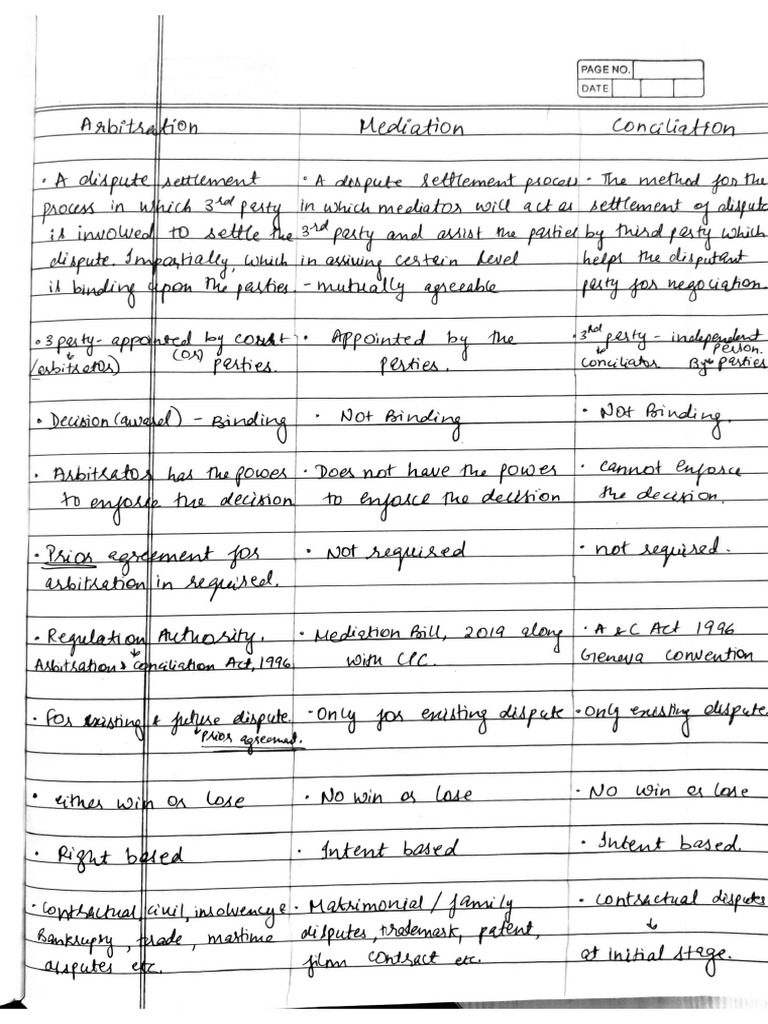 PAGE NO.
DATE
Arbitration Mediation Conciliation
• A dispute settlement
process in which 3rd party
is involved to settle the
dispute. Impartially, which
is binding upon the parties.
• A dispute settlement process
in which mediator will act as
3rd party and assist the parties
in arriving certain level
- mutually agreeable
• The method for the
settlement of dispute
by third party which
helps the disputant
party for negociation.
• 3 party - appointed by court
(arbitrator) (or) parties.
• Appointed by the
parties.
• 3rd party - independent
person.
conciliator By parties
• Decision (award) - Binding
• Not Binding
• Not Binding.
• Arbitrator has the power
to enforce the decision
• Does not have the power
to enforce the decision
• cannot enforce
the decision.
• Prior agreement for
arbitration in required.
• Not required
• not required.
• Regulation Authority.
↓
Arbitration & Conciliation Act, 1996
• Mediation Bill, 2019 along
with CPC.
• A & C Act 1996
Geneva Convention
• For existing & future dispute.
↳ prior agreement.
• Only for existing dispute
• Only existing dispute.
• either win or lose
• No win or lose
• No win or lose
• Right based
• Intent based
• Intent based.
• Contractual, civil, insolvency &
Bankrupry, trade, maritime
disputes etc.
• Matrimonial / family
disputes, trademark, patent,
film contract etc.
• contractual disputes
↓
at initial stage.